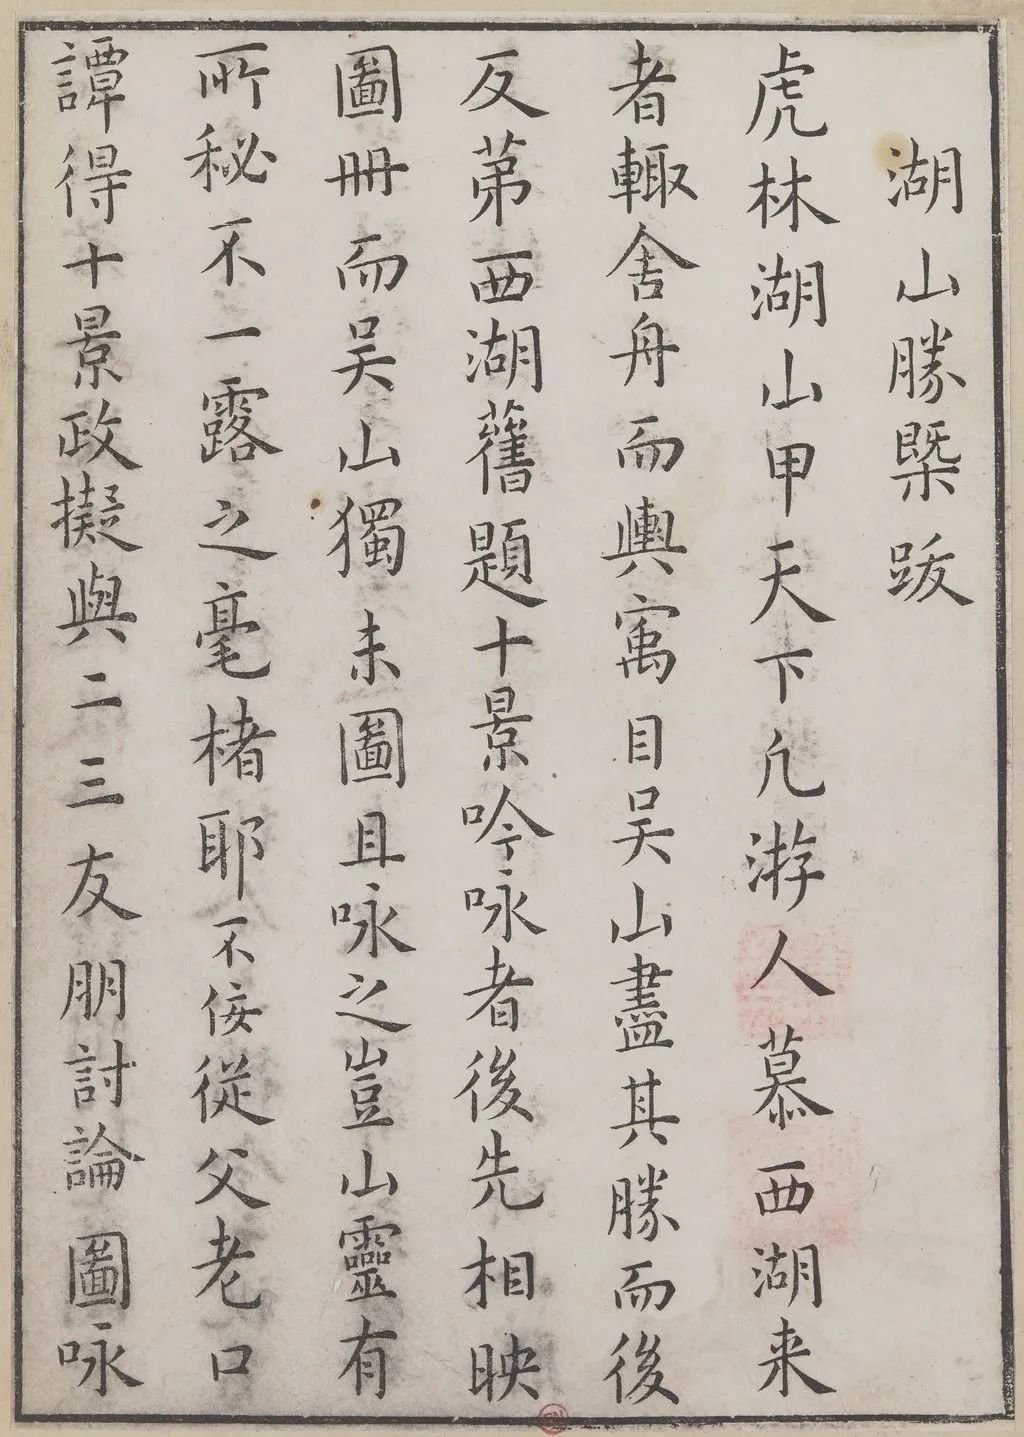 湖山勝槩跋
虎林湖山甲天下凢游人慕西湖来
者輙舍舟而輿寓目吴山盡其勝而後
反苐西湖舊題十景吟咏者後先相映
圖冊而吴山獨未圖且咏之豈山靈有
所秘不一露之毫楮耶不佞從父老口
譚得十景政擬與二三友朋討論圖咏